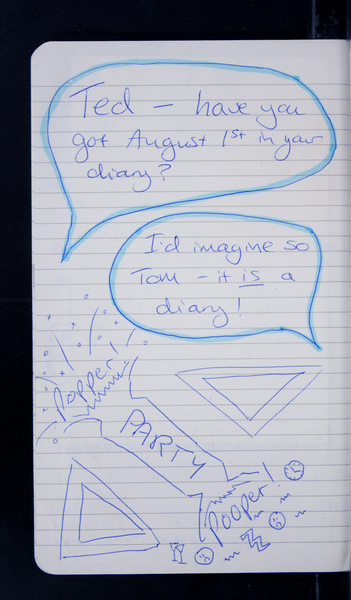 Ted – have you
got August 1st in your
diary?
I'd imagine so
Tom – it is a
diary!
Popper!
PARTY
Pooper!